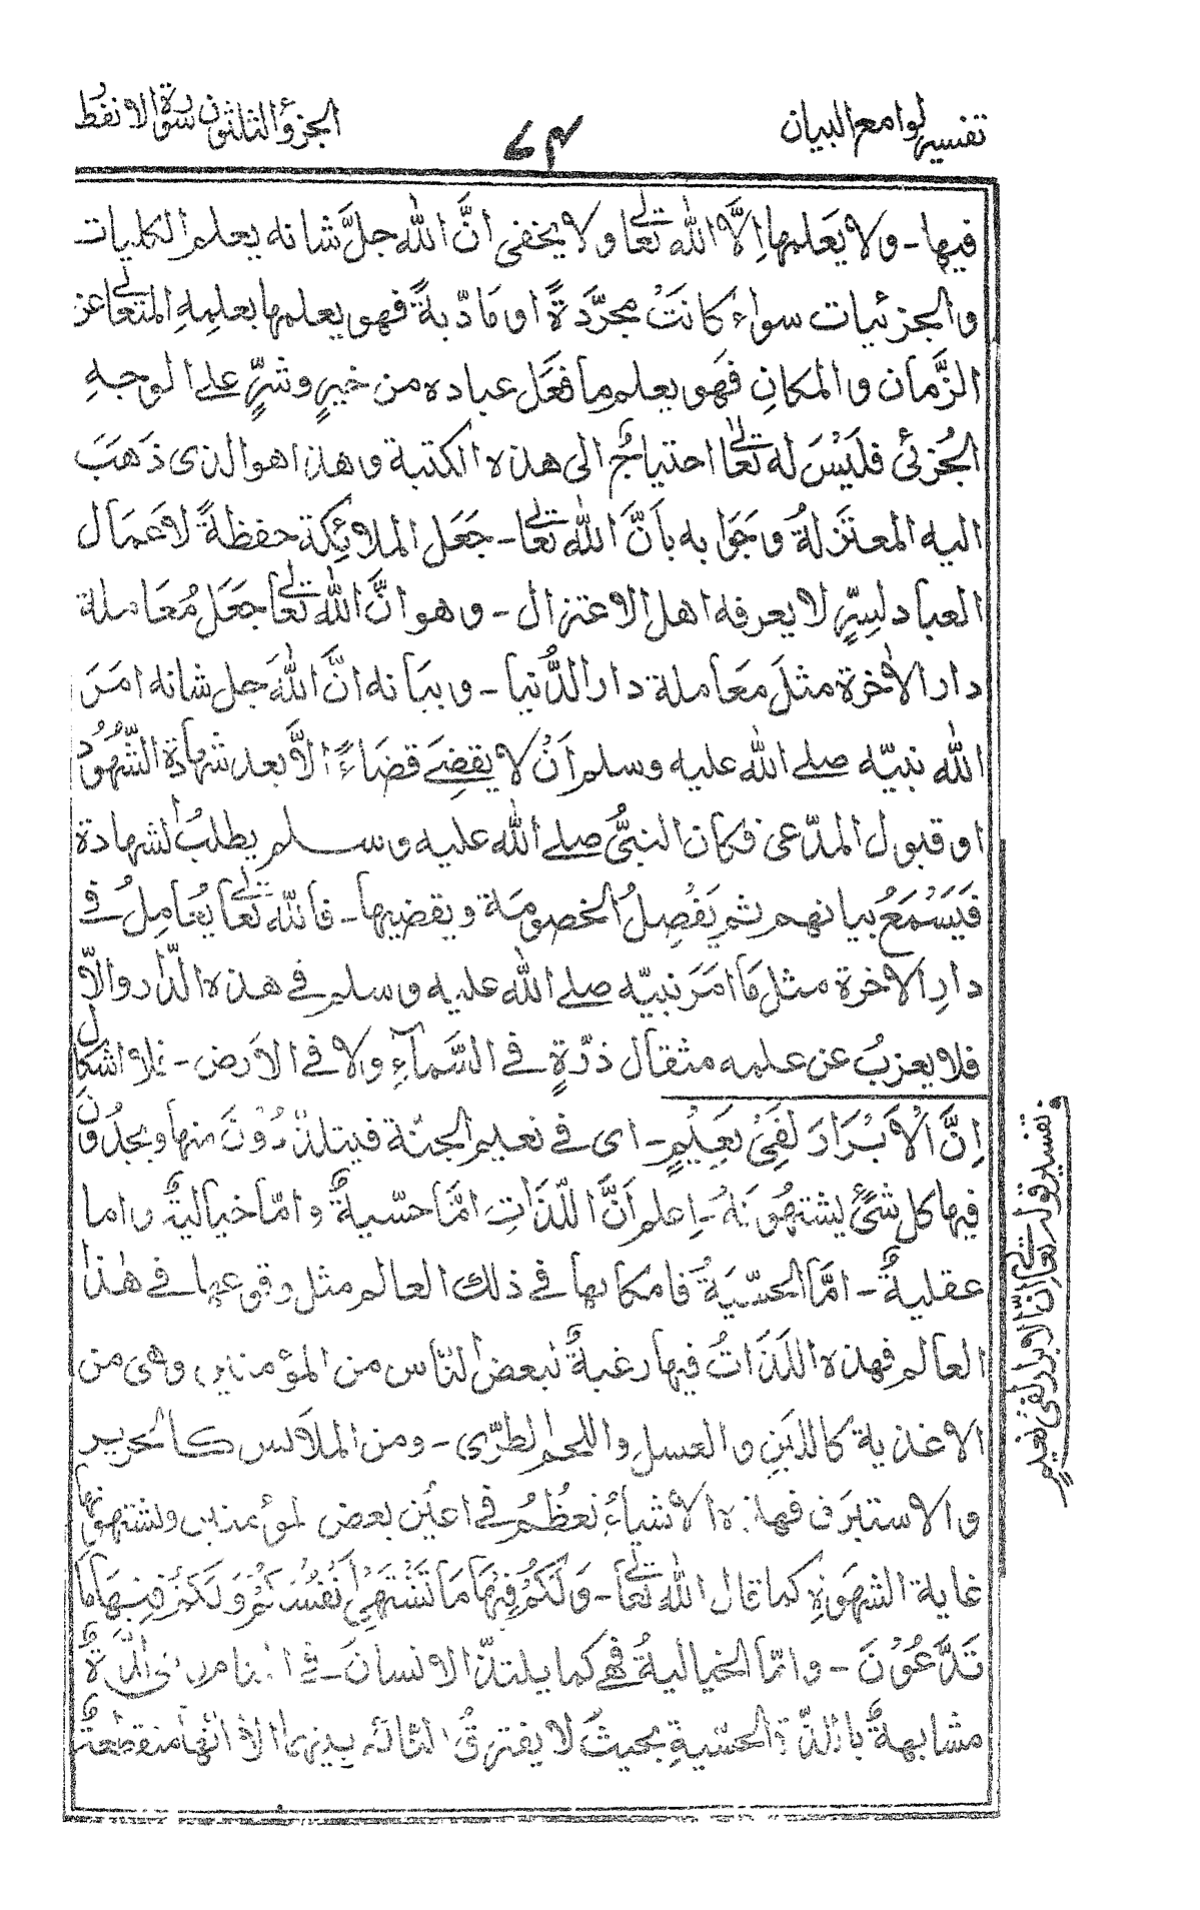 تفسير لوامع البيان
٧٤
الجزؤ الثلثون سورة الانفط
فيها - ولا يَعلمها اِلَّا الله تعالى ولا يخفى انَّ الله جلَّ شانه يعلم الكليات
والجزئيات سواء كانَتْ مجرَّدةً او مَادّيةً فهو يعلمها بعلمِهِ المتعالى عن
الزَّمان والمكانِ فهَو يعلم ما فعَل عباده من خيرٍ وشرٍّ على الوجهِ
الجُزئى فلَيْسَ له تعَالىٰ احتياجٌ الى هذه الكتبة وهذا هو الذى ذهَبَ
اليه المعتزلةُ وجَوابه بأَنَّ الله تعَالى - جعَل الملائِكة حفظةً لاعَمال
العباد لسِرٍّ لا يعرفه اهل الاعتزال - وهو انَّ الله تعَالى جَعَل مُعَاملة
دار الاٰخرة مثلَ مَعَاملة دار الدُّنيا - وبيَانه انَّ اللهَ جل شانه امَرَ
الله نبيّه صلے الله عليه وسلم اَنْ لا يقضِےَ قضَاءً الَّا بعد شهادة الشّهُوُد
او قبول المدّعى فكان النبىُّ صلے الله عليه وسلم يطلبُ الشهادة
فَيَسْمَعُ بيانهم ثم يَفْصِلُ الخصومَة ويقضيها - فالله تعَالى يُعَامِلُ فے
دارِ الاٰخرة مثل مَا امَرَ نبيّه صلے الله عليه وسلم فے هذه الدّار والّا
فلا يعزبُ عن علمه مثقال ذرّةٍ فے السَّمآءِ ولا فے الاَرض - فلا اشكال
اِنَّ الْاَبْرَارَ لَفِىْ نَعِيْمٍ - اى فے نعيم الجنّة فيتلذّذُوْنَ منها ويجدُونَ
فيها كل شئٍ يشتهُونَهُ - اِعلم اَنَّ اللّذَاتِ امَّا حسّيةٌ وامّا خياليةٌ واما
عقليةٌ - امَّا الحسّيَةُ فامكانها فے ذلك العالم مثل وقوعها فے هٰذا
العالم فهذه اللّذَاتُ فيها رغبةٌ لبعض النّاس من المؤمنين وهى من
الاغذية كاللبَنِ والعسلِ واللحم الطرّى - ومن الملَابس كالحرير
والاستبرق فهذه الاشياءُ تعظُمُ فے اعيُن بعض المؤمنين ويشتهونها
غاية الشهوَةِ كما قال الله تعَالى - وَلَكُمْ فِيْهَا مَا تَشْتَهِىْ اَنْفُسُكُمْ وَلَكُمْ فِيْهَا مَا
تَدَّعُوْنَ - وامّا الخياليةُ فهے كما يلتذّ الانسان - فے
مشابهةٌ باللذّة الحسّيةِ بحيثُ لا يفترقُ بينهما الّا انّها منقطعةٌ
تفسير قوله تعالى اِنَّ الابرار لفى نعيم